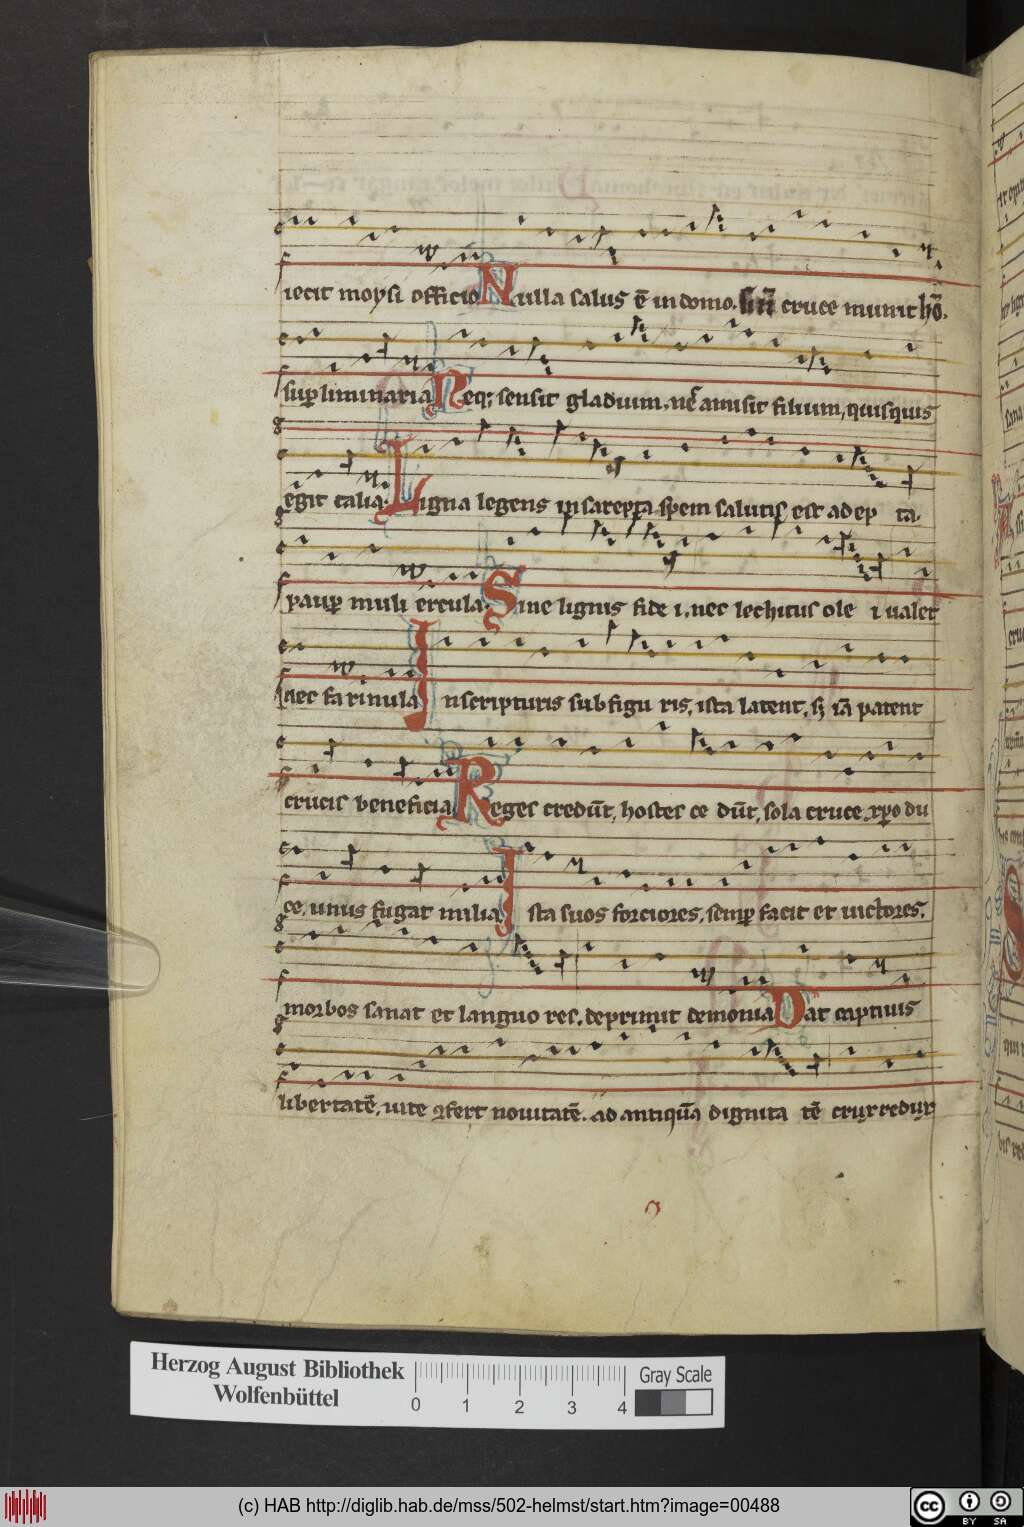 iecit moysi officio Nulla salus ē in domo. sin̄ cruce munit hō.
suꝑ liminaria Neqꝫ sensit gladium, nec̄ amisit filium, quisquis
egit talia. Ligna legens in sarepta spem salutis est adep ta.
pauꝑ muli ercula. Sine lignis fide i. nec lechitus ole i ualet
nec farinula In scripturis sub figu ris, ista latent, sꝫ iā patent
crucis beneficia Reges credūt, hostes ce dūt, sola cruce xp̄o du
ce, unus fugat milia Ista suos forciores, semꝑ facit et uictores,
morbos sanat et languo res, deprimit demonia Dat captiuis
libertatē, uite ꝯfert nouitatē. ad antiquā dignita tē crux redux
Herzog August Bibliothek
Wolfenbüttel
0 1 2 3 4
Gray Scale
(c) HAB http://diglib.hab.de/mss/502-helmst/start.htm?image=00488
cc BY SA